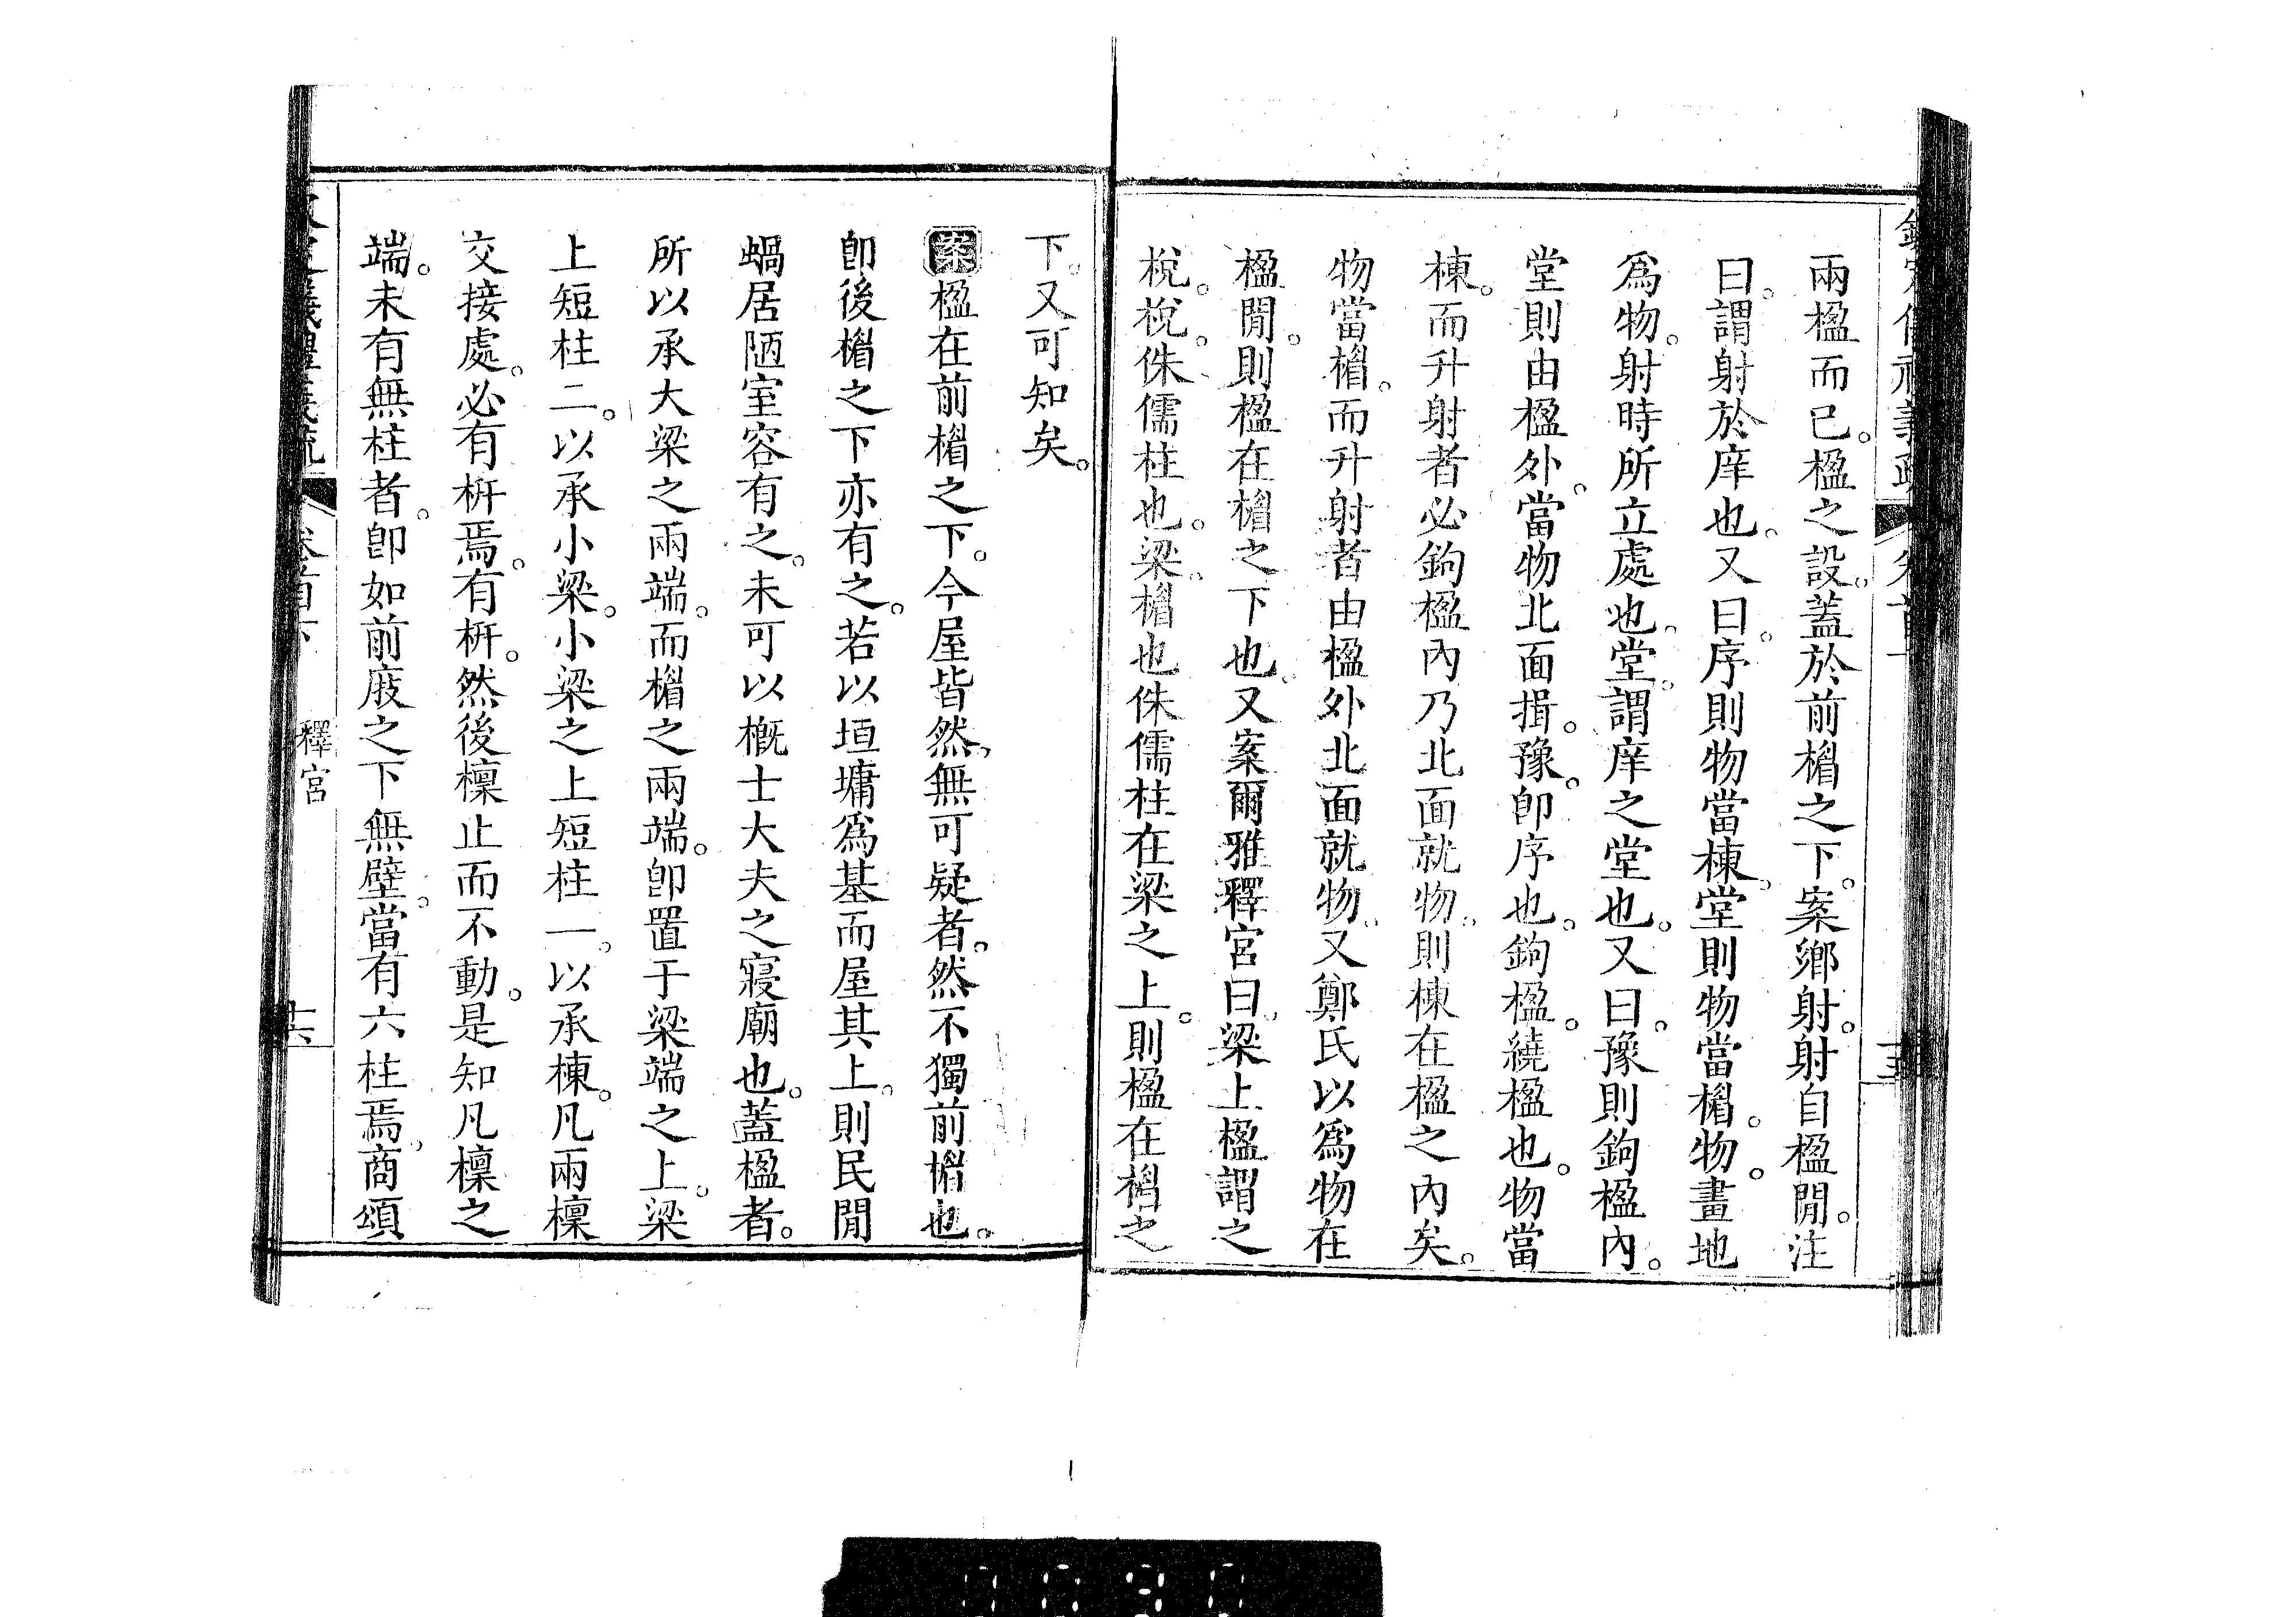 兩楹而已。楹之設。蓋於前楣之下。案鄉射。射自楹閒。注
曰。謂射於庠也。又曰。序則物當棟。堂則物當楣。物。畫地
爲物。射時所立處也。堂。謂庠之堂也。又曰。豫則鉤楹內。
堂則由楹外。當物北面揖。豫。卽序也。鉤楹。繞楹也。物當
棟。而升射者必鉤楹內乃北面就物。則棟在楹之內矣。
物當楣。而升射者由楹外北面就物。又鄭氏以爲物在
楹閒。則楹在楣之下也。又案爾雅釋宮曰。梁上楹謂之
梲。梲。侏儒柱也。梁。楣也侏儒柱在梁之上。則楹在楣之
下。又可知矣。
案楹在前楣之下。今屋皆然。無可疑者。然不獨前楣也。
卽後楣之下亦有之。若以垣墉爲基而屋其上。則民閒
蝸居陋室容有之。未可以概士大夫之寢廟也。蓋楹者。
所以承大梁之兩端。而楣之兩端。卽置于梁端之上。梁
上短柱二。以承小梁。小梁之上短柱一。以承棟。凡兩檁
交接處。必有枅焉。有枅。然後檁止而不動。是知凡檁之
端。未有無柱者。卽如前庪之下無壁。當有六柱焉。商頌
卷首下
釋宮
十六